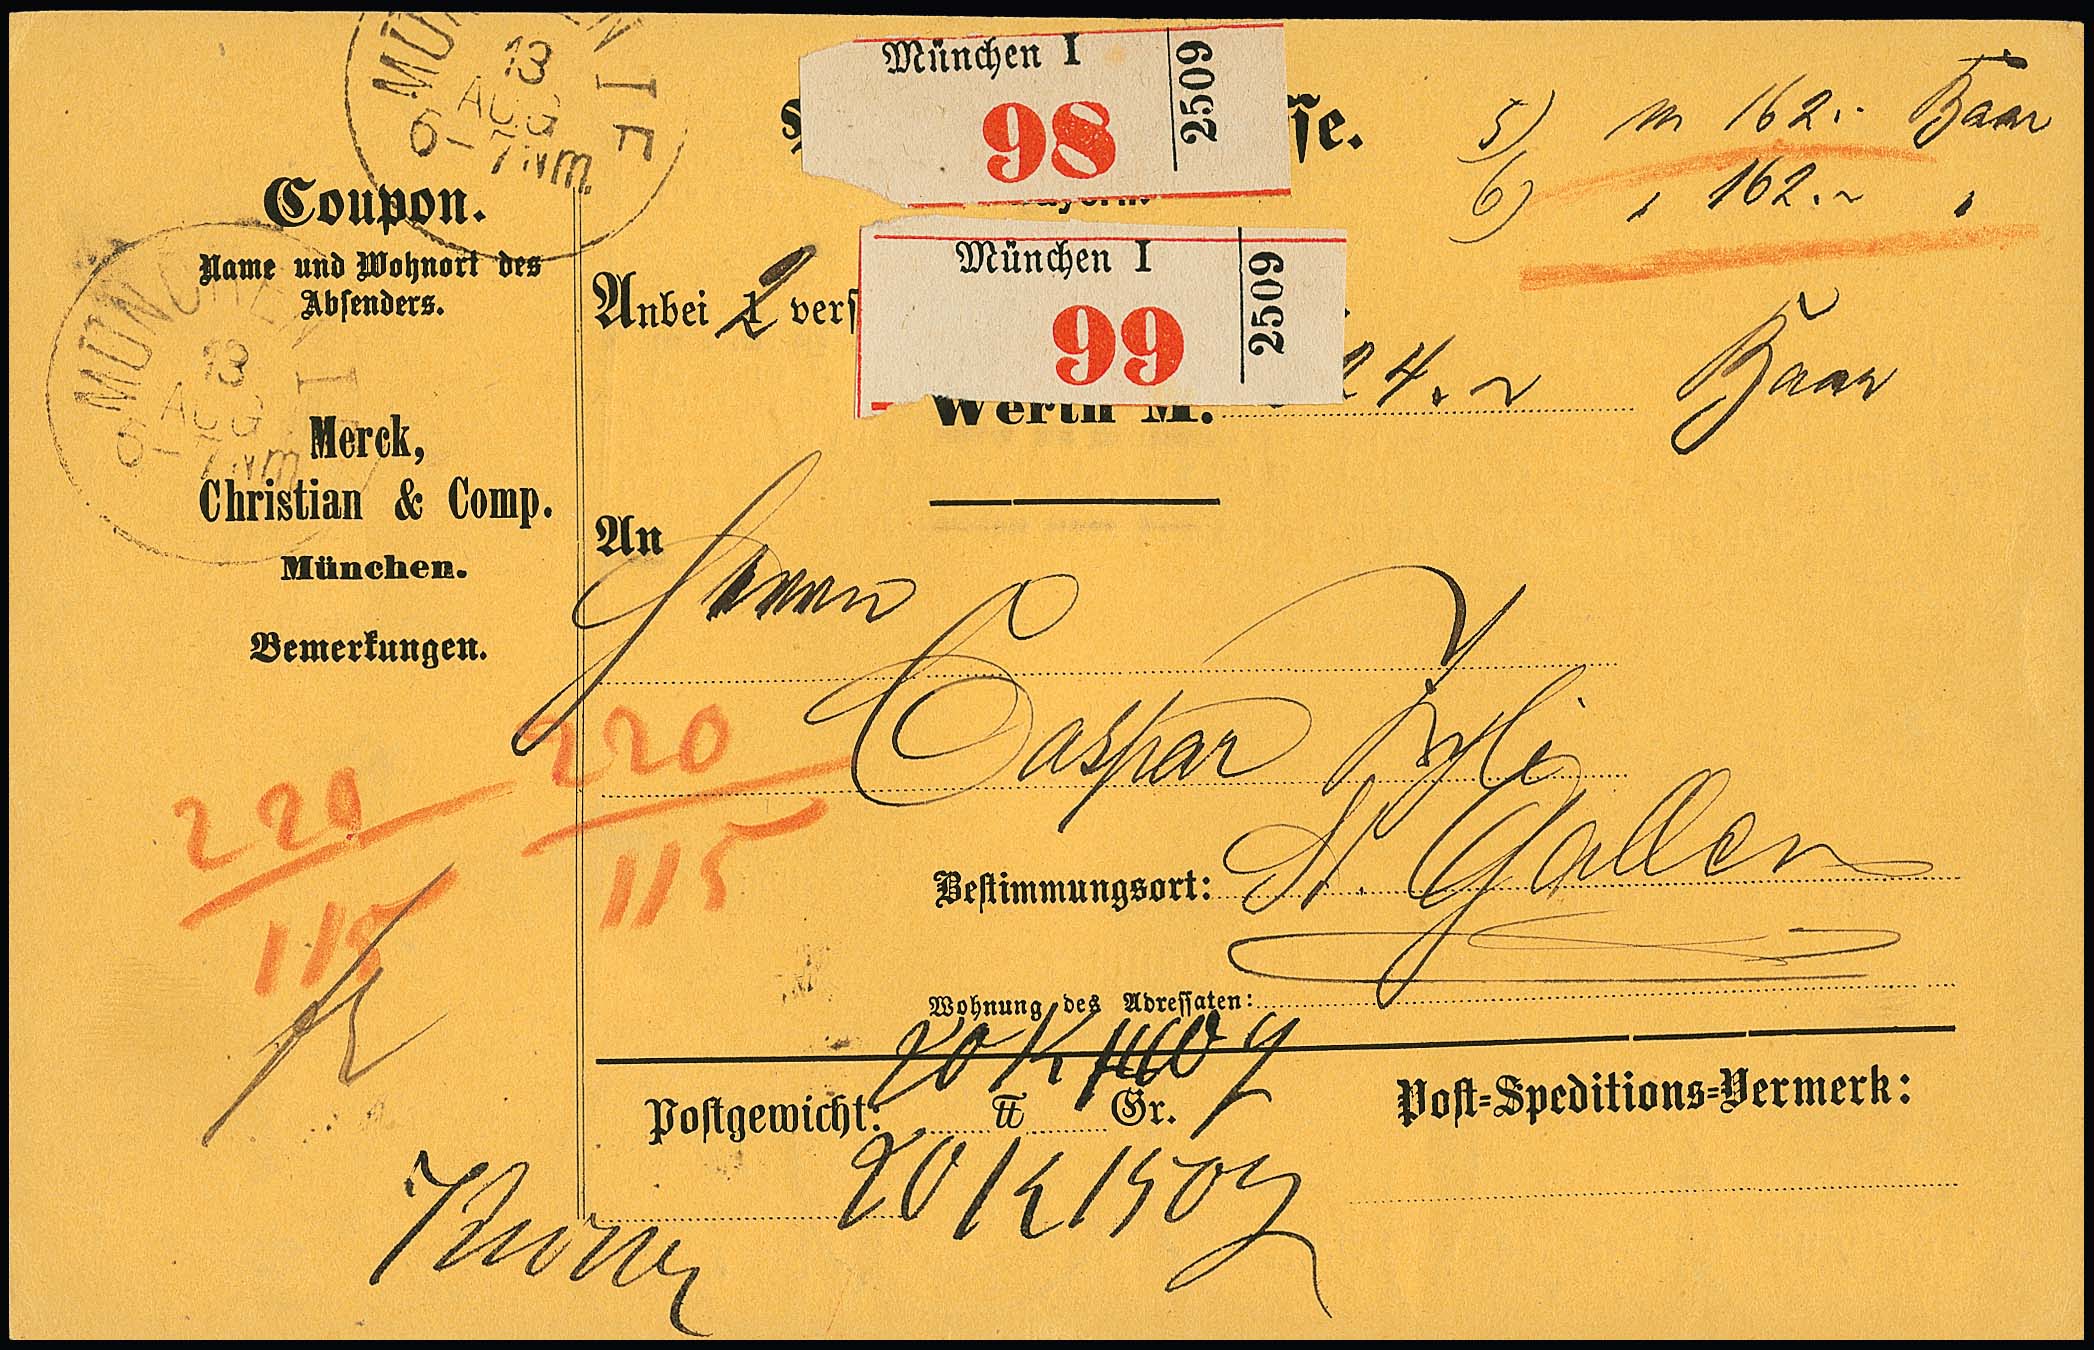 MÜNCHEN I F
13
AUG
6-7 NM.
Coupon.
Name und Wohnort des
Absenders.
MÜNCHEN I
13
AUG
6-7 NM.
Merck,
Christian & Comp.
München.
Bemerkungen.
220
115
München I
98
2509
sse.
München I
99
2509
5) M 162.- Baar
6) " 162.- "
Anbei 2 vers
Werth M. 24.- Baar
An
Herrn
Caspar
Bestimmungsort: St. Gallen
220
115
Wohnung des Adressaten:
Postgewicht: ℔ Gr.
20 K 150 g
Post-Speditions-Vermerk: